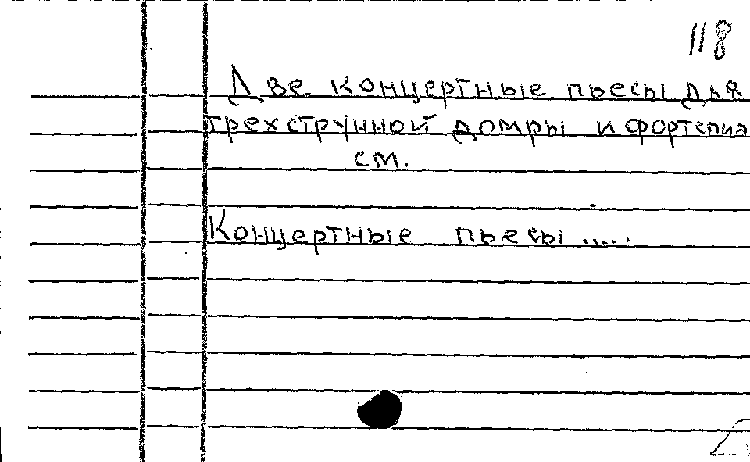 118
Две концертные пьесы для
трехструнной домры и фортепиа
см.
Концертные пьесы .....